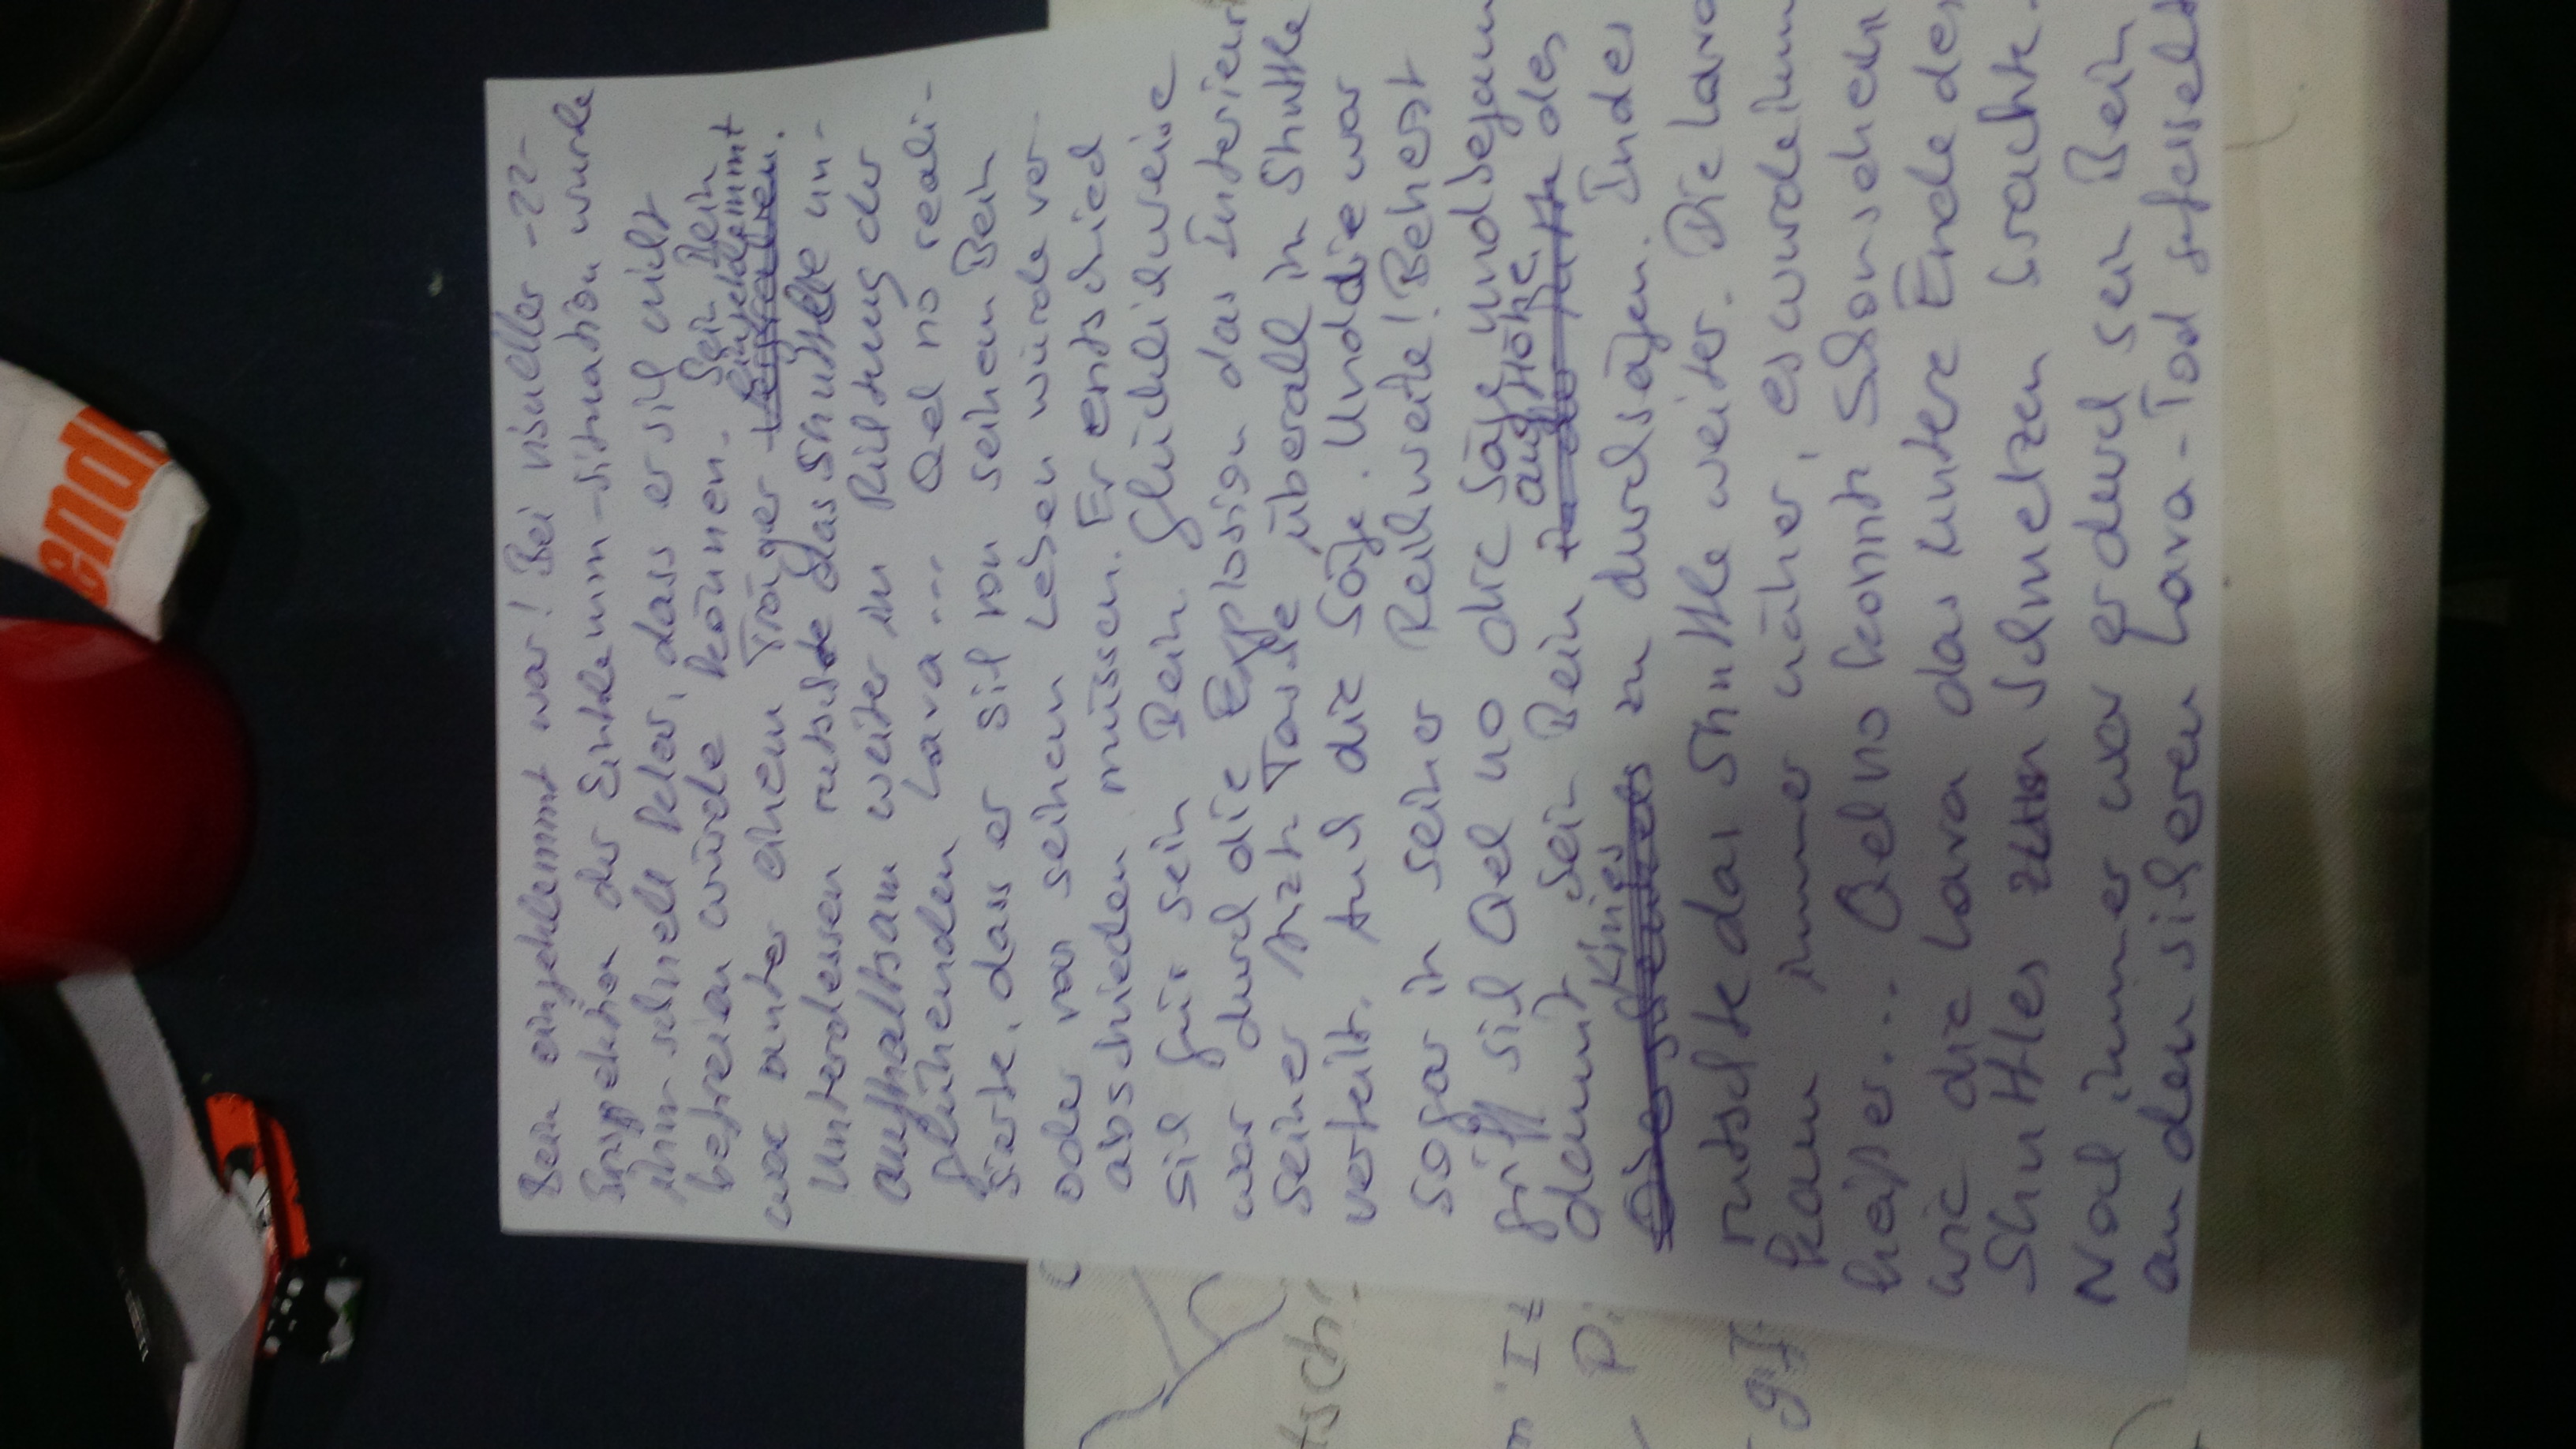 Bein eingeklemmt war! Bei visueller -22-
Inspektion der Einklemm-situation wurde
ihm schnell klar, dass er sich nicht
befreien würde können. Sein Bein
war unter einem Träger eingeklemmt
Unterdessen rutschte das Shuttle un-
aufhaltsam weiter in Richtung der
glühenden Lava... Qel no reali-
sierte, dass er sich von seinem Bein
oder von seinem Leben würde ver-
abschieden müssen. Er entschied
sich für sein Bein. Glücklicherweise
war durch die Explosion das Interieur
seiner Arzt-Tasche überall im Shuttle
verteilt. Auch die Säge. Und die war
sogar in seiner Reichweite! Beherzt
griff sich Qel no die Säge und begann
damit sein Bein auf Höhe des
Knies zu durchsägen. Indes
rutschte das Shuttle weiter. Die Lava
kam immer näher, es wurde imm
heißer... Qel no konnte schon sehen
wie die Lava das untere Ende des
Shuttles zum Schmelzen brachte.
Noch immer war er durch sein Bein
an den sicheren Lava-Tod gefesselt
endl
tsch